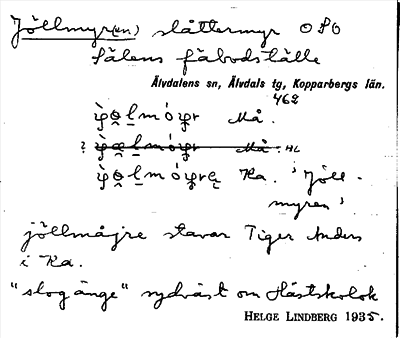 Jöllmyr(en) slåttermyr O S O
Sälens fäbodställe
Älvdalens sn, Älvdals tg, Kopparbergs län.
462
Må.
? Må. HL
Ka. 'Jöll-
myren'
jöllmåjre stavar Tiger Anders
i Ka.
"slogänge" sydväst om Hästskolok
HELGE LINDBERG 1935.